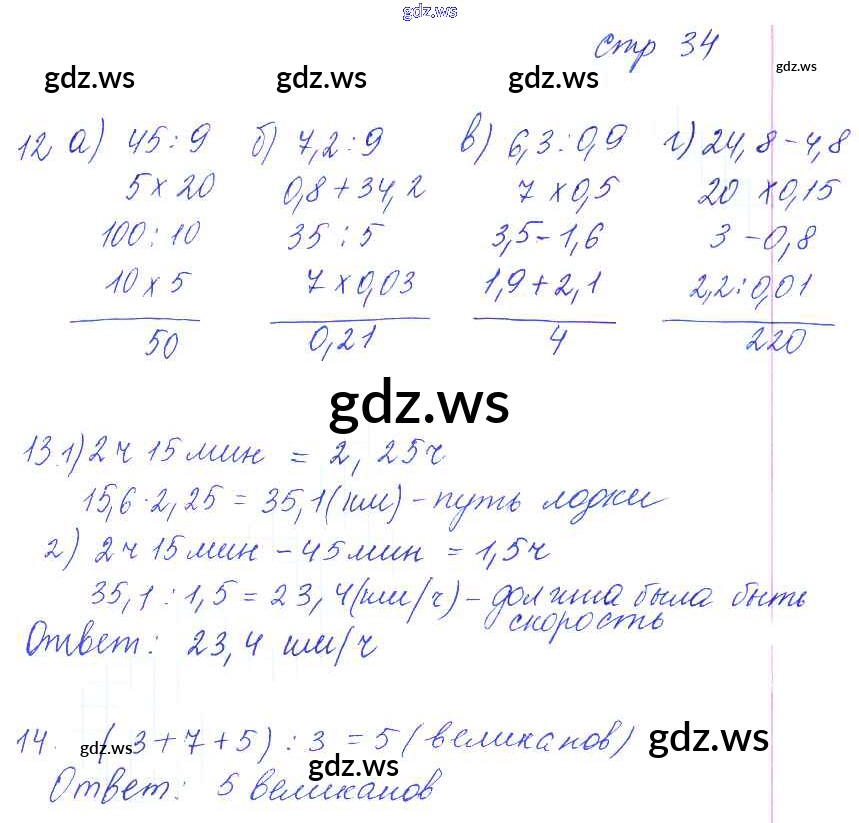 gdz.ws
стр 34
gdz.ws gdz.ws gdz.ws gdz.ws
12 а) 45 : 9 б) 7,2 : 9 в) 6,3 : 0,9 г) 24,8 - 4,8
5 x 20 0,8 + 34,2 7 x 0,5 20 x 0,15
100 : 10 35 : 5 3,5 - 1,6 3 - 0,8
10 x 5 7 x 0,03 1,9 + 2,1 2,2 : 0,01
50 0,21 4 220
gdz.ws
13. 1) 2 ч 15 мин = 2,25 ч
15,6 · 2,25 = 35,1 (км) - путь лодки
2) 2 ч 15 мин - 45 мин = 1,5 ч
35,1 : 1,5 = 23,4 (км/ч) - должна была быть
скорость
Ответ: 23,4 км/ч
14. (3 + 7 + 5) : 3 = 5 (великанов)
gdz.ws gdz.ws
gdz.ws
Ответ: 5 великанов